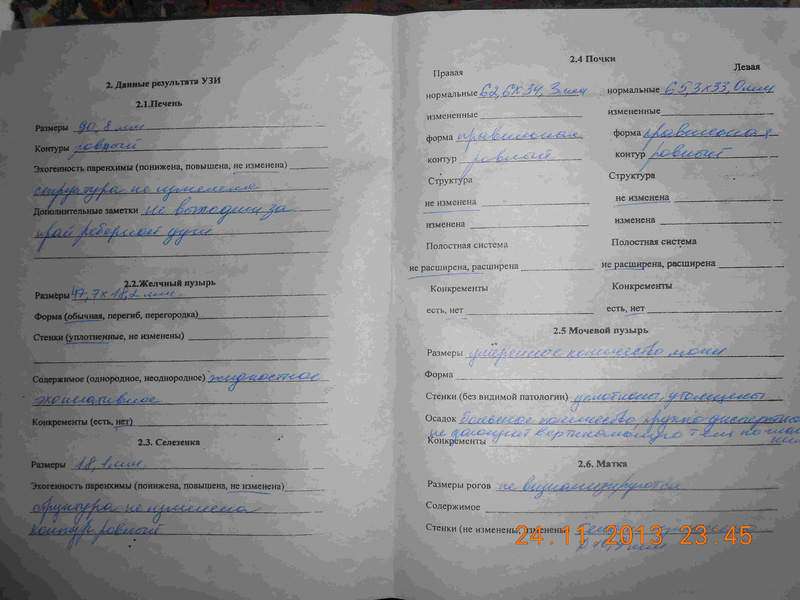 2. Данные результата УЗИ
2.1.Печень
Размеры 90,8 мм
Контуры ровный
Эхогенность паренхимы (понижена, повышена, не изменена)
структура не изменена
Дополнительные заметки не выходит за
край реберной дуги
2.2.Желчный пузырь
Размеры 47,7х18,2 мм
Форма (обычная, перегиб, перегородка)
Стенки (уплотненные, не изменены)
Содержимое (однородное, неоднородное) жидкостное
эхонегативное
Конкременты (есть, нет)
2.3. Селезенка
Размеры 18,1 мм
Эхогенность паренхимы (понижена, повышена, не изменена)
структура не изменена
контур ровный
2.4 Почки
Правая Левая
нормальные 62,6х34,3 мм нормальные 65,3х33,0 мм
измененные измененные
форма правильная форма правильная
контур ровный контур ровный
Структура Структура
не изменена не изменена
изменена изменена
Полостная система Полостная система
не расширена, расширена не расширена, расширена
Конкременты Конкременты
есть, нет есть, нет
2.5 Мочевой пузырь
Размеры умеренное количество мочи
Форма
Стенки (без видимой патологии) уплотнены, утолщены
Осадок большое количество, крупно-дисперсно
не дающий акустическую тень
Конкременты
2.6. Матка
Размеры рогов не визуализируются
Содержимое
Стенки (не изменены, изменены)
24.11.2013 23:45